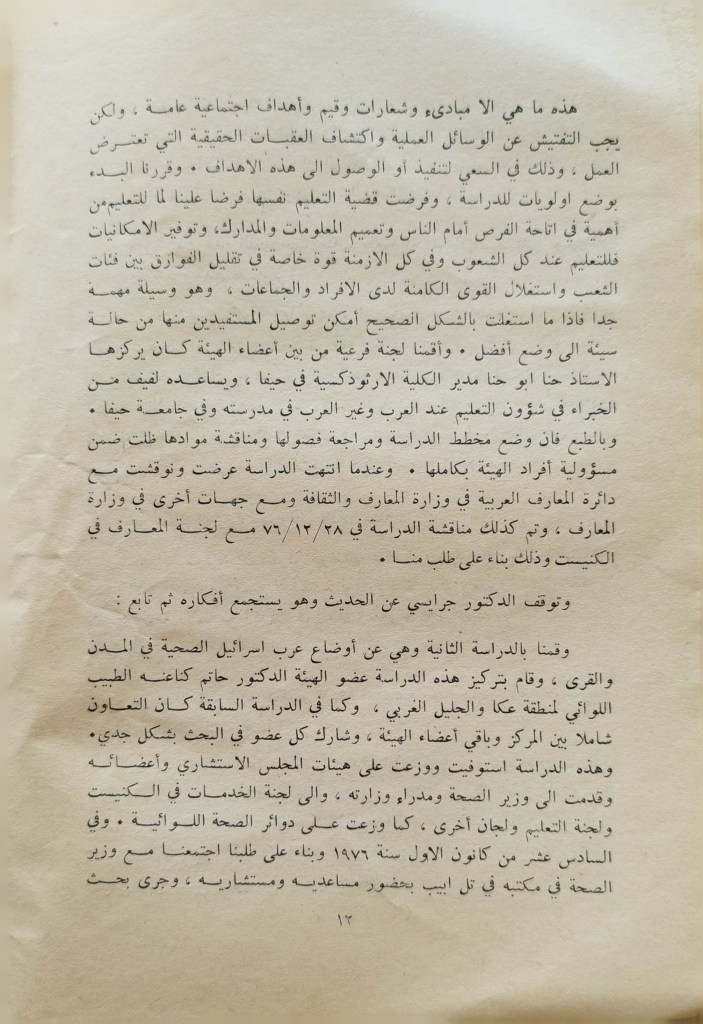 هذه ما هي الا مبادىء وشعارات وقيم وأهداف اجتماعية عامـة ، ولكن
يجب التفتيش عن الوسائل العملية واكتشاف العقبات الحقيقية التي تعتـرض
العمل ، وذلك في السعي لتنفيذ أو الوصول الى هذه الاهداف • وقررنا البـدء
بوضع اولويات للدراسة ، وفرضت قضية التعليم نفسها فرضا علينا لما للتعليم من
أهمية في اتاحة الفرص أمام الناس وتعميم المعلومات والمدارك، وتوفير الامكانيات
فللتعليم عند كل الشعوب وفي كل الازمنة قوة خاصة في تقليل الفوارق بين فئات
الشعب واستغلال القوى الكامنة لدى الافراد والجماعات ، وهو وسيلة مهمـة
جدا فاذا ما استغلت بالشكل الصحيح أمكن توصيل المستفيدين منها من حالـة
سيئة الى وضع أفضل • وأقمنا لجنة فرعية من بين أعضاء الهيئة كـان يركزهـا
الاستاذ حنا ابو حنا مدير الكلية الارثوذكسية في حيفا ، ويساعـده لفيف مـن
الخبراء في شؤون التعليم عند العرب وغير العرب في مدرسته وفي جامعة حيفا •
وبالطبع فان وضع مخطط الدراسة ومراجعة فصولها ومناقشة موادها ظلت ضمن
مسؤولية أفراد الهيئة بكاملها • وعندما انتهت الدراسة عرضت ونوقشت مـع
دائرة المعارف العربية في وزارة المعارف والثقافة ومـع جهـات أخرى في وزارة
المعارف ، وتم كذلك مناقشة الدراسة في ٧٦/١٢/٢٨ مـع لجنـة المعـارف في
الكنيست وذلك بناء على طلب منـا •
وتوقف الدكتور جرايسي عن الحديث وهو يستجمع أفكاره ثم تابع :
وقمنا بالدراسة الثانية وهي عن أوضاع عرب اسرائيل الصحية في المـدن
والقرى ، وقام بتركيز هذه الدراسة عضو الهيئة الدكتور حاتم كناعنـه الطبيب
اللوائي لمنطقة عكا والجليل الغربي ، وكما في الدراسة السابقة كـان التعـاون
شاملا بين المركز وباقي أعضاء الهيئة ، وشارك كل عضو في البحث بشكل جدي•
وهذه الدراسة استوفيت ووزعت على هيئات المجلس الاستشاري وأعضـائـه
وقدمت الى وزير الصحة ومدراء وزارته ، والى لجنة الخدمات في الـكنيست
ولجنة التعليم ولجان أخرى ، كما وزعت عـلـى دوائر الصحة اللـوائيـة • وفي
السادس عشر من كانون الاول سنة ١٩٧٦ وبناء على طلبنا اجتمعنـا مـع وزير
الصحة في مكتبه في تل ابيب بحضور مساعديـه ومستشاريـه ، وجرى بحـث
١٢